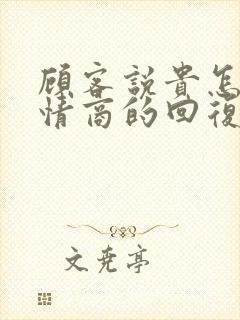 顧客說貴怎
情商的回復
文尭亭